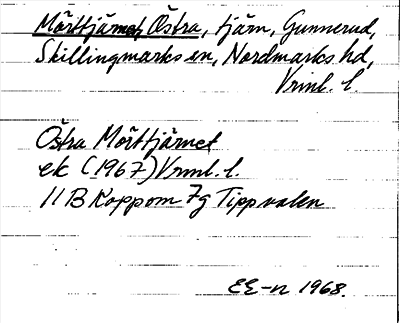 Mörttjärnet, Östra, tjärn, Gunnerud,
Skillingmarks sn, Nordmarks hd,
Vrml. l.
Östra Mörttjärnet
ek (1967) Vrml. l.
11B Koppom 7g Tippvalen
EE-n 1968.